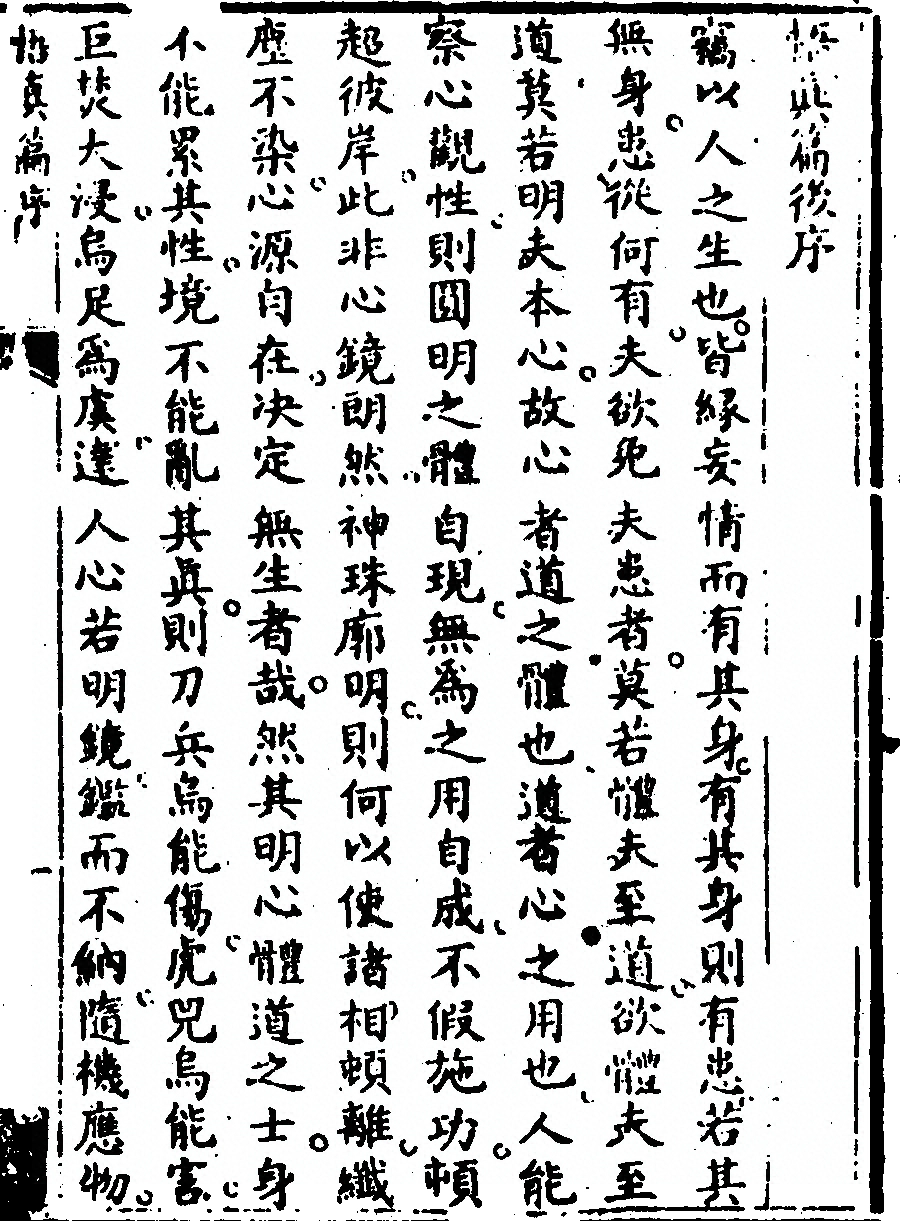 悟真篇後序
竊以人之生也皆緣妄情而有其身有其身則有患若其
無身患從何有夫欲免夫患者莫若體夫至道欲體夫至
道莫若明夫本心故心者道之體也道者心之用也人能
察心觀性則圓明之體自現無爲之用自成不假施功頓
超彼岸此非心鏡朗然神珠廓明則何以使諸相頓離纖
塵不染心源自在决定無生者哉然其明心體道之士身
不能累其性境不能亂其眞則刀兵烏能傷虎兕烏能害
巨焚大浸烏足爲虞達人心若明鏡鑑而不納隨機應物
悟真篇序